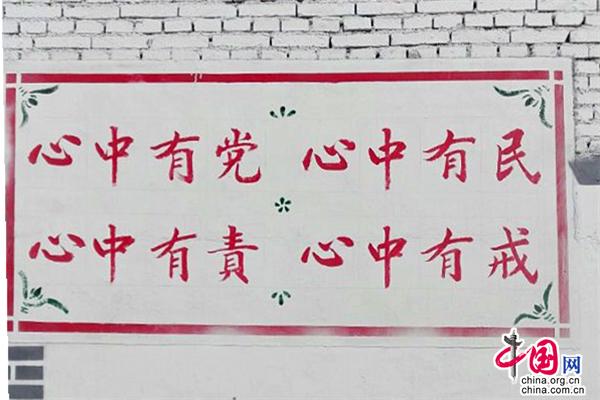 心中有党 心中有民
心中有責 心中有戒
中国网
china.org.cn
china.com.cn